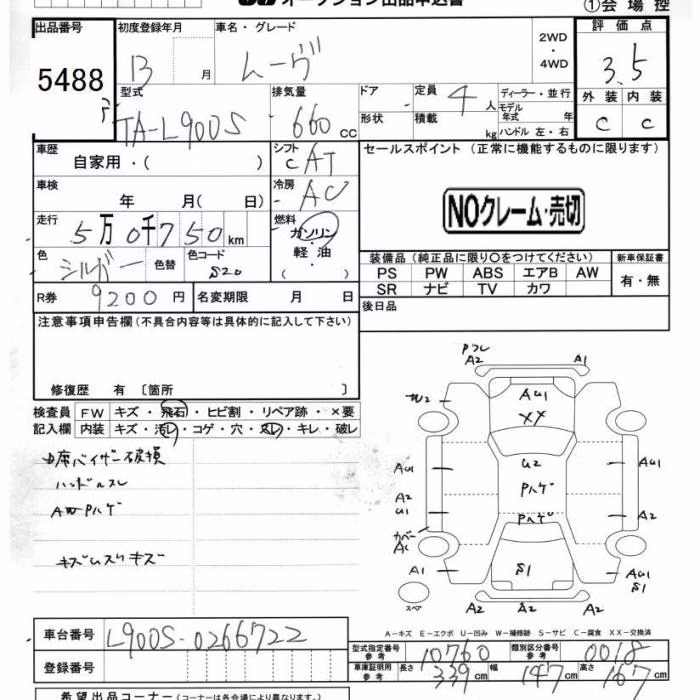 オークション出品申込書
①会場控
出品番号
5488
初度登録年月
13 月
車名・グレード
ムーヴ
2WD
・
4WD
評価点
3.5
外装 内装
C C
型式
TA-L900S
排気量
660 cc
ドア
形状
定員 4 人
積載 kg
ディーラー・並行
モデル年式 年
ハンドル 左・右
車歴
自家用・( )
シフト
CAT
セールスポイント (正常に機能するものに限ります)
車検
年 月( 日)
冷房
AC
NOクレーム・売切
走行
5万0千750km
燃料
ガソリン・
軽油
・( )
色
シルバー
色替
色コード
S20
装備品 (純正品に限り○をつけてください)
新車保証書
PS PW ABS エアB AW
SR ナビ TV カワ
有・無
R券 9200 円
名変期限 月 日
後日品
注意事項申告欄 (不具合内容等は具体的に記入して下さい)
修復歴 有 〔箇所 〕
検査員記入欄
FW キズ・飛石・ヒビ割・リペア跡・×要
内装 キズ・汚レ・コゲ・穴・スレ・キレ・破レ
バイザー破損
ハンドルスレ
キズムスリキズ
A2 A1
W2
AU1
XX
U2
Pハゲ
Pハゲ
AU1
A2
U1
カバー
A1
A1
AU1
A2
AU1
S1
S1
A2 A2
スペア
A-キズ E-エクボ U-凹み W-補修跡 S-サビ C-腐食 XX-交換済
車台番号
L900S-0266722
型式指定番号
参考
10760
類別区分番号
参考
0018
登録番号
車庫証明用
参考
長さ 339cm
幅 147cm
高さ 167cm
希望出品コーナー (コーナーは各会場により異なります。)